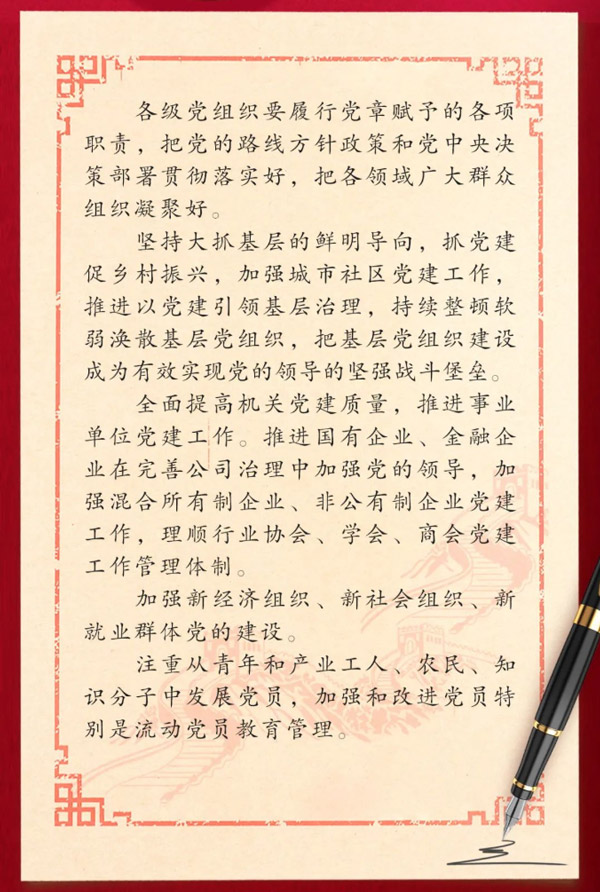 各级党组织要履行党章赋予的各项
职责，把党的路线方针政策和党中央决
策部署贯彻落实好，把各领域广大群众
组织凝聚好。
坚持大抓基层的鲜明导向，抓党建
促乡村振兴，加强城市社区党建工作，
推进以党建引领基层治理，持续整顿软
弱涣散基层党组织，把基层党组织建设
成为有效实现党的领导的坚强战斗堡垒。
全面提高机关党建质量，推进事业
单位党建工作。推进国有企业、金融企
业在完善公司治理中加强党的领导，加
强混合所有制企业、非公有制企业党建
工作，理顺行业协会、学会、商会党建
工作管理体制。
加强新经济组织、新社会组织、新
就业群体党的建设。
注重从青年和产业工人、农民、知
识分子中发展党员，加强和改进党员特
别是流动党员教育管理。